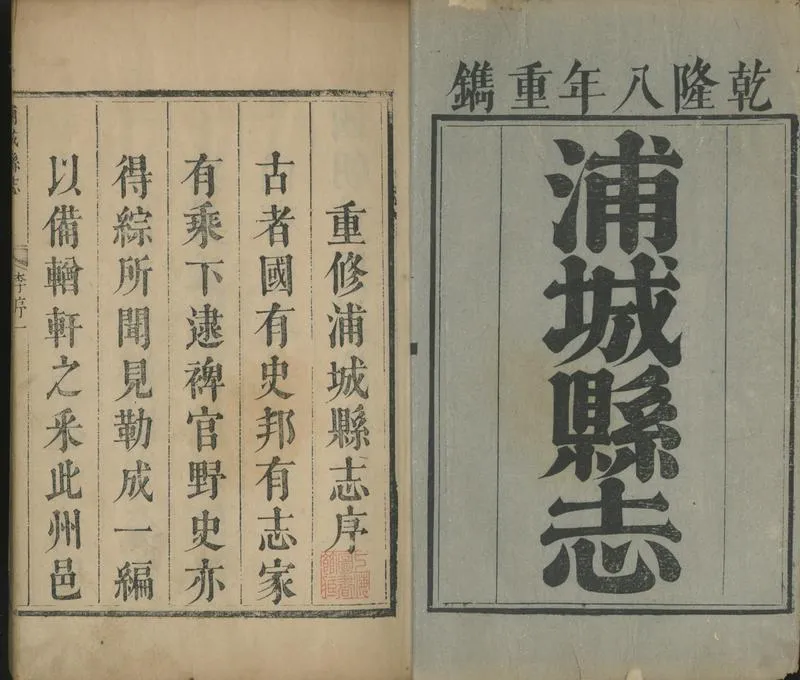 乾隆八年重鐫
浦城縣志
重修浦城縣志序
古者國有史邦有志家
有乘下逮裨官野史亦
得綜所聞見勒成一編
以備輶軒之采此州邑
浦城縣志
李序一